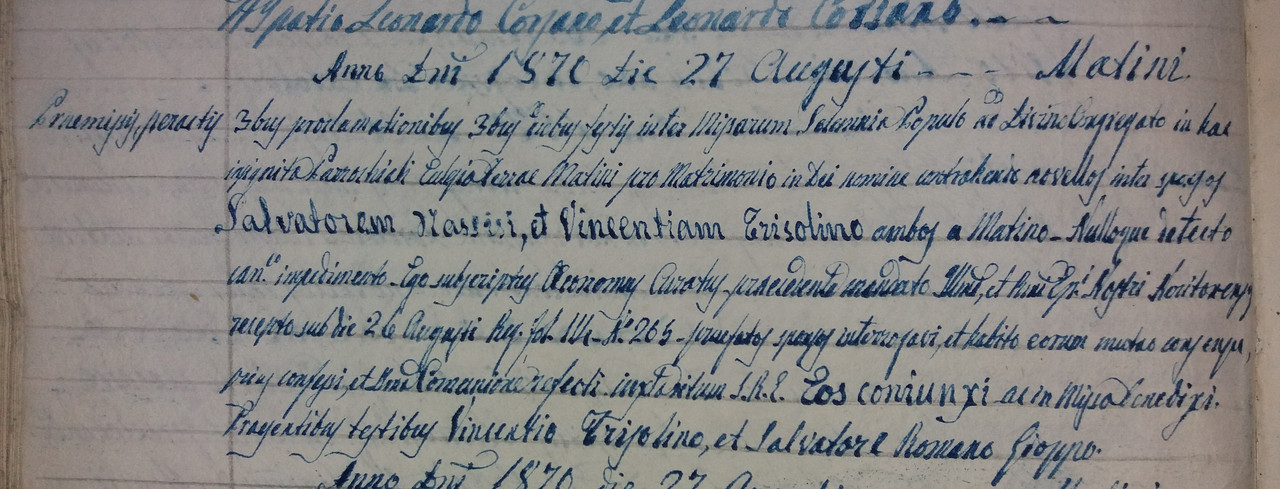 Hypatio Leonardo Corsano, et Leonardo Corsano.
Anno Dni 1870 Die 27 Augusti - - - Matini.
Praemissis, peractis 3bus proclamationibus 3bus festis inter Missarum Solemnia Populo ad Divina Congregato in hac
insignita Parrochiali Terrae Matini pro Matrimonio in Dei nomine contrahendo novellos inter sponsos
Salvatorem Nassisi, et Vincentiam Trisolino ambos a Matino - Nulloque detecto
can.co impedimento - Ego subscriptus Oeconomus Curatus praecedente mandato Illmi, et Rmi Epi Nostri Neritonensis
recepto sub die 26 Augusti Reg. fol. N.o 265 - praefatos sponsos interrogavi, et habito eorum mutuo consensu,
prius confessi, et Communione refecti iuxta ritum S.R.E. Eos coniunxi ac in Missa Benedixi.
Presentibus testibus Vincentio Trisolino, et Salvatore Romano Gioppo.
Anno Dni 1870 die 27